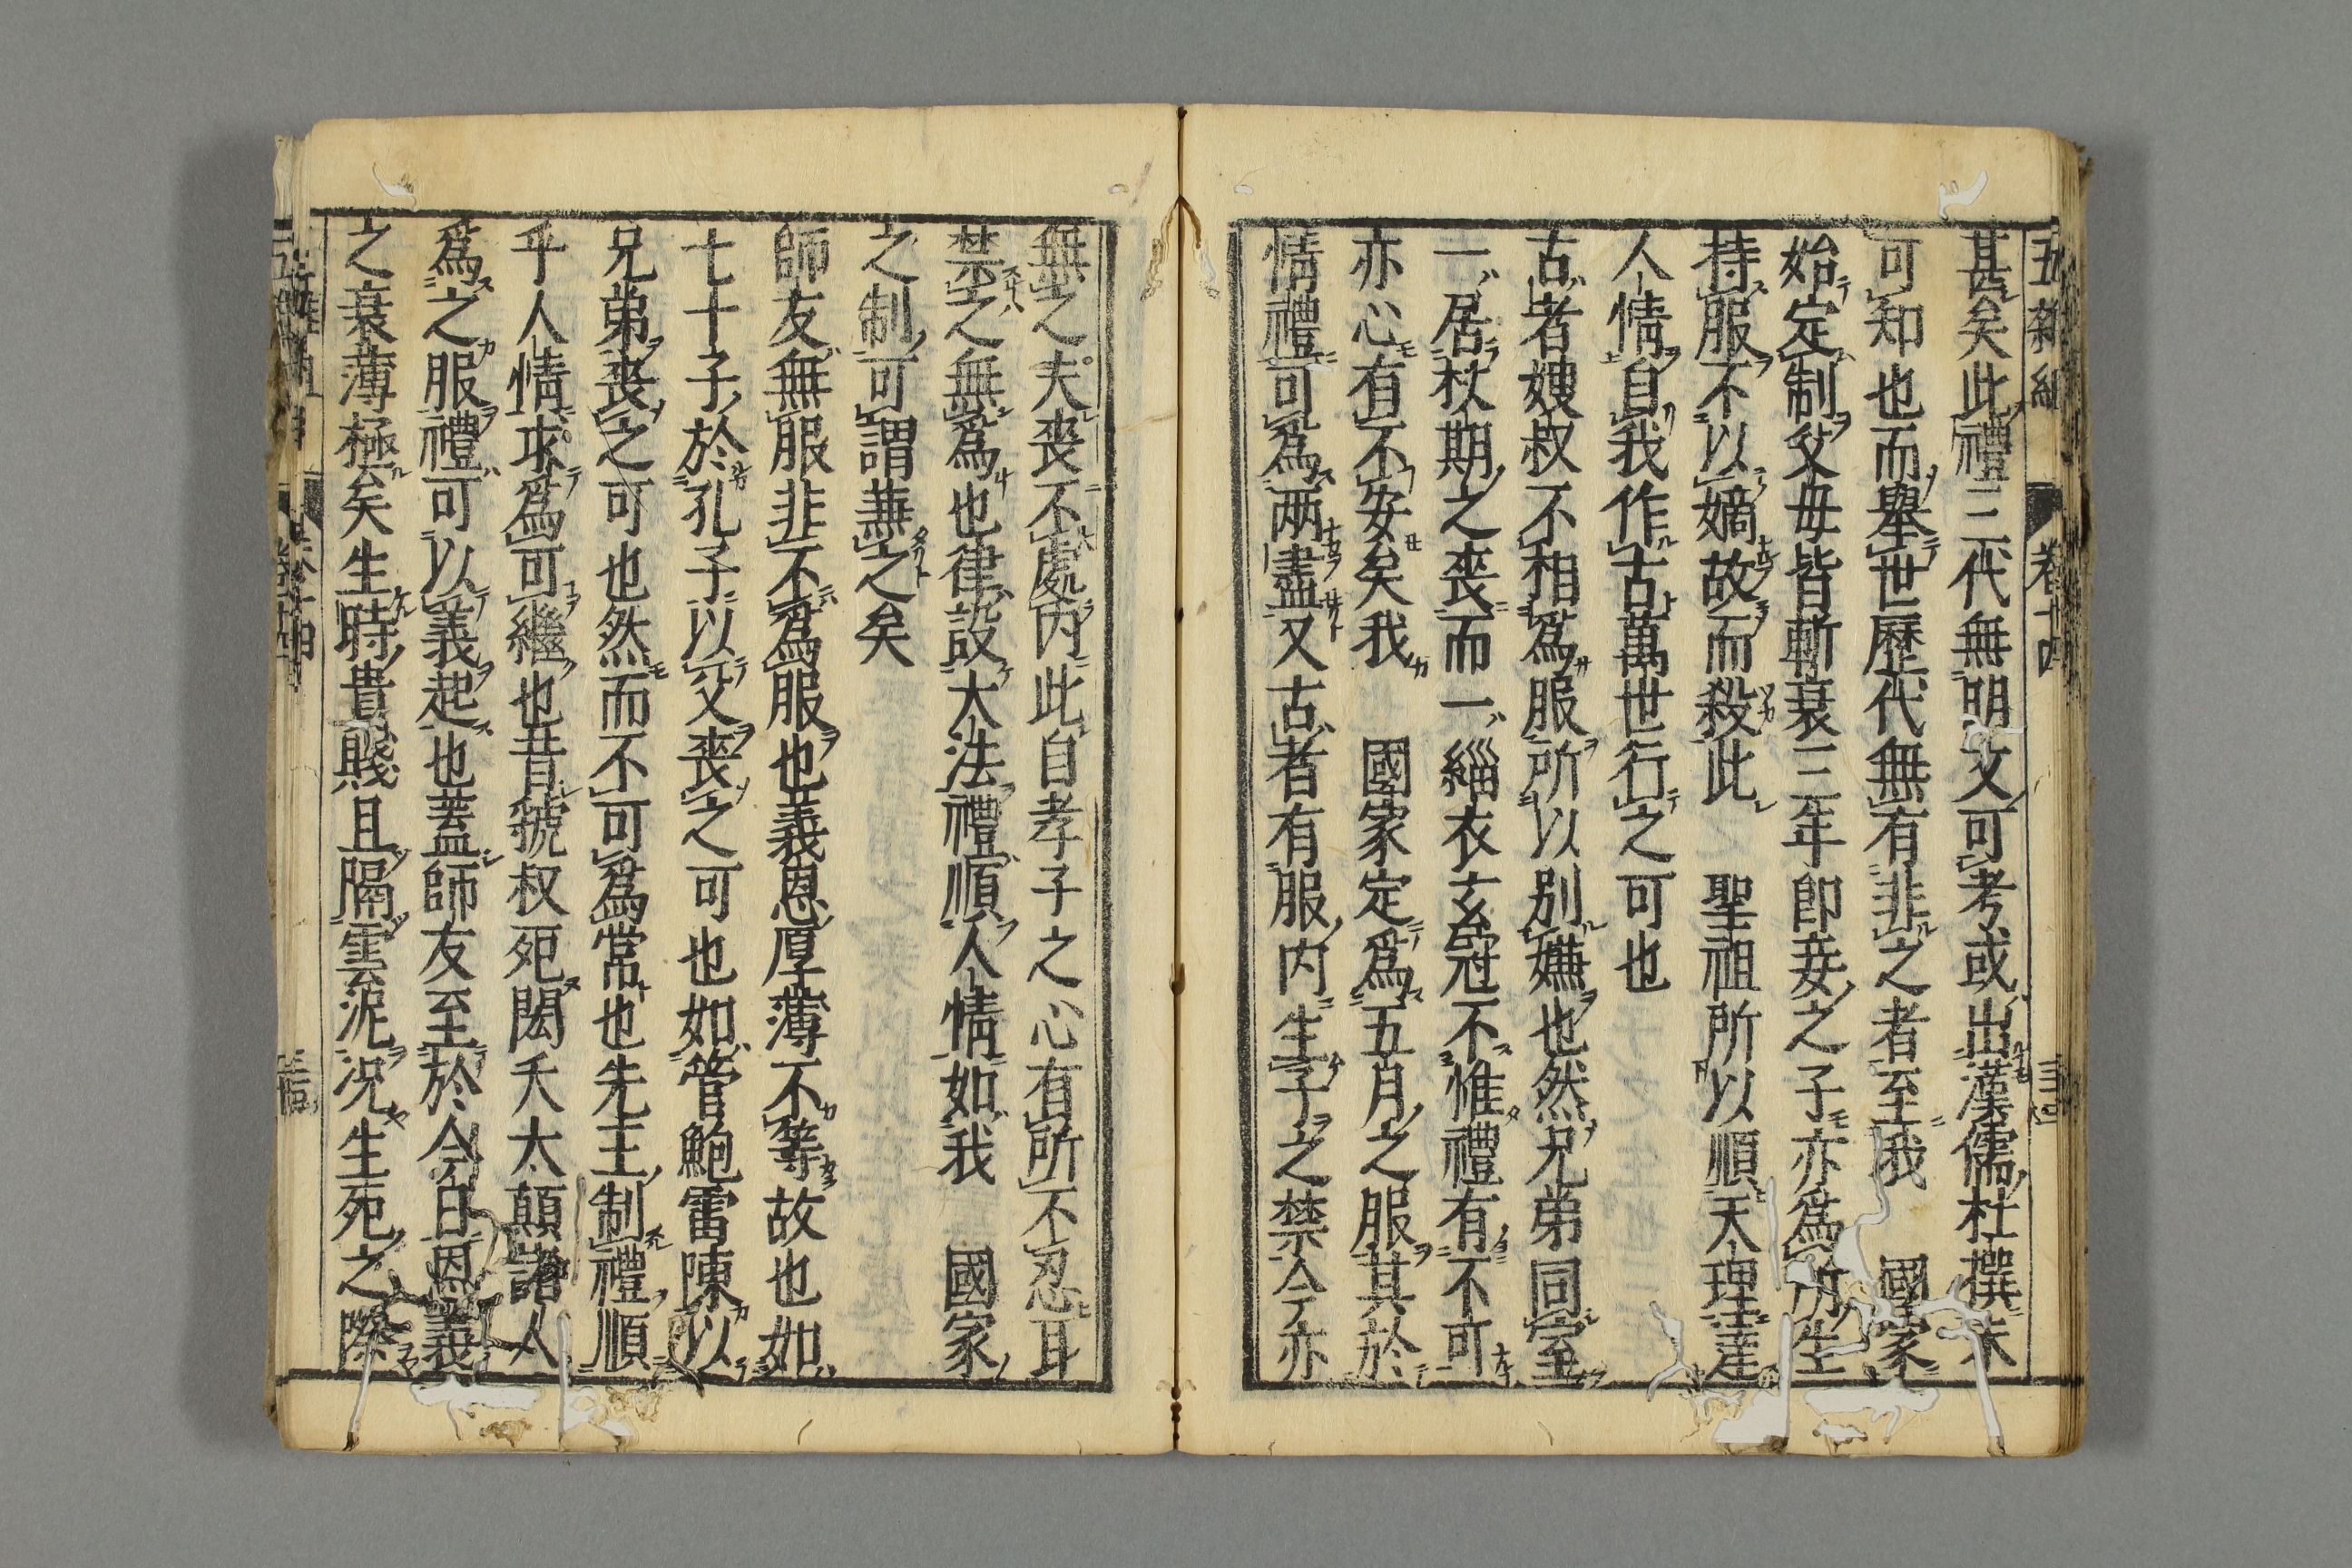 五雜組 卷十四
甚矣此禮三代無明文可考或出漢儒杜撰未
可知也而舉世歷代無有非之者至我 國家
始定制父母皆斬衰三年即妾之子亦爲所生
持服不以嫡故而殺此 聖祖所以順天理達
人情自我作古萬世行之可也
古者嫂叔不相爲服所以别嫌也然兄弟同室
一居杖期之喪而一緇衣玄冠不惟禮有不可
亦心有不安矣我 國家定爲五月之服其於
情禮可爲兩盡又古者有服内生子之禁今亦
無之夫喪不處内此自孝子之心有所不忍耳
禁之無爲也律設大法禮順人情如我 國家
之制可謂兼之矣
師友無服非不爲服也義恩厚薄不等故也如
七十子於孔子以父喪之可也如管鮑雷陳以
兄弟喪之可也然而不可爲常也先王制禮順
乎人情求爲可繼也昔虢叔死閎夭太顛諸人
爲之服禮可以義起也蓋師友至於今日恩義
之衰薄極矣生時貴賤且隔雲泥况生死之際